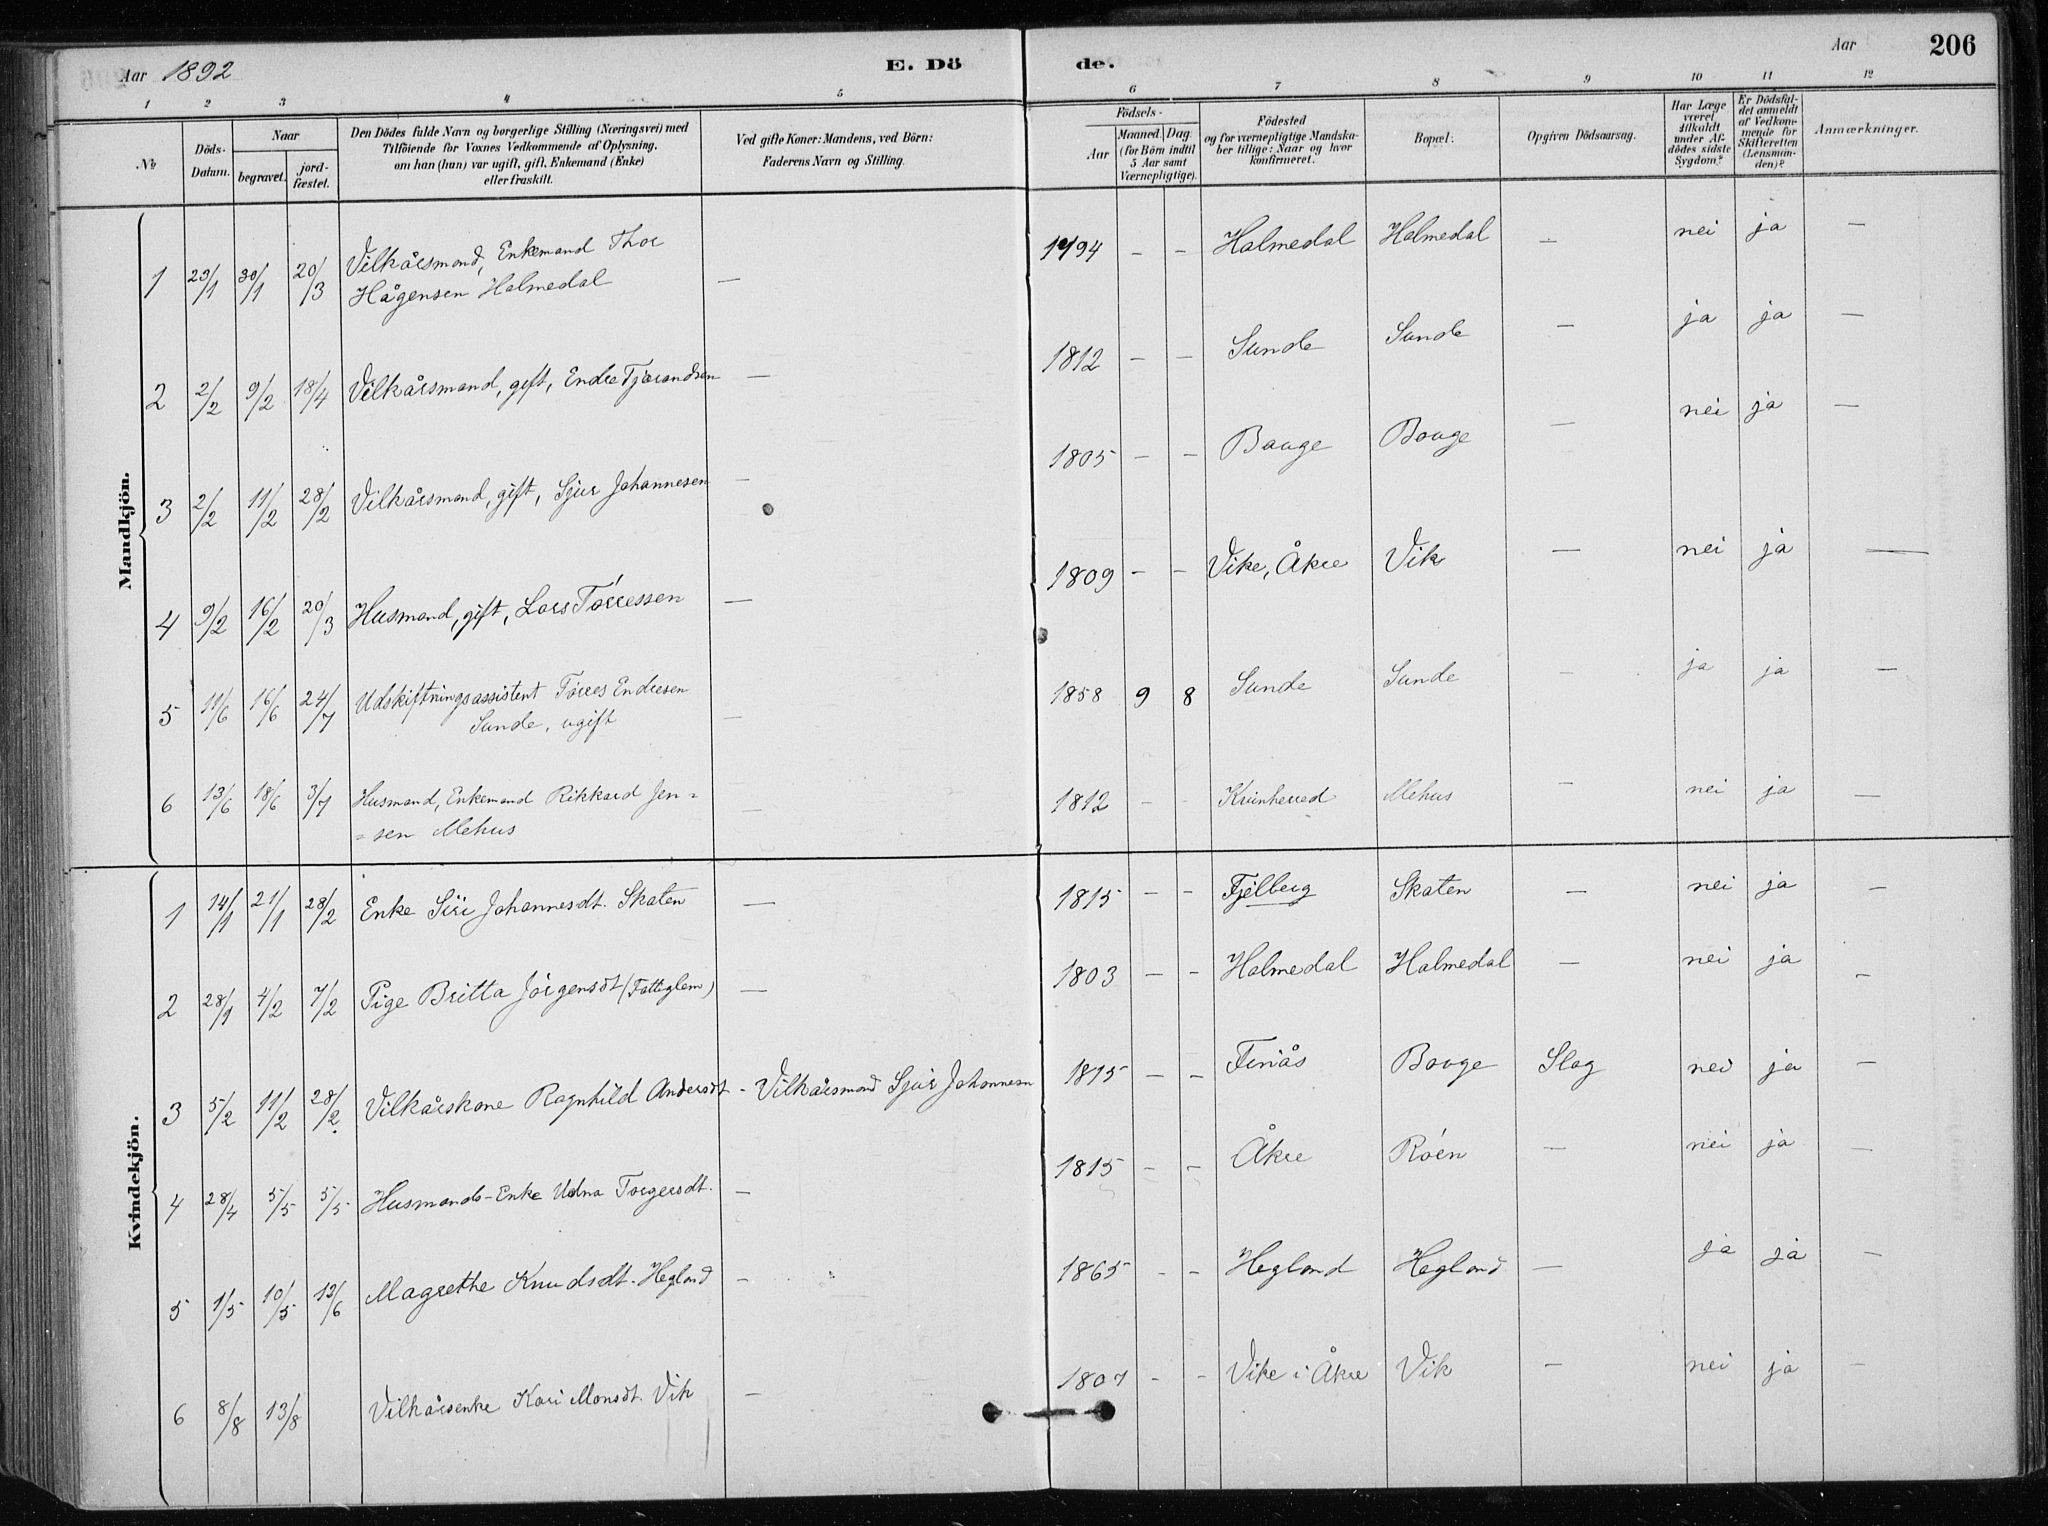 Aar 1892
E. Dö
de.
Aar
206
1 2 3 4 5 6 7 8 9 10 11 12
№
Döds-
Datum.
Naar
begravet.
jord-
fæstet.
Den Dödes fulde Navn og borgerlige Stilling (Næringsvei) med
Tilföiende for Voxnes Vedkommende af Oplysning,
om han (hun) var ugift, gift, Enkemand (Enke)
eller fraskilt.
Ved gifte Koner: Mandens, ved Börn:
Faderens Navn og Stilling.
Födsels-
Aar
Maaned. Dag.
(for Börn indtil
5 Aar samt
Værnepligtige).
Födested
og for værnepligtige Mandska-
ber tillige: Naar og hvor
konfirmeret.
Bopæl.
Opgiven Dödsaarsag.
Har Læge
været
tilkaldt
under Af-
dödes sidste
Sygdom?
Er Dödsfal-
det anmeldt
af Vedkom-
mende for
Skifteretten
(Lensman-
den)?
Anmærkninger.
Mandkjön.
1 23/1 30/1 20/3 Vilkårsmand, Enkemand Thor
Hågensen Halmedal — 1794 - - Halmedal Halmedal — nei ja —
2 2/2 9/2 18/4 Vilkårsmand, gift, Endre Tjörandsen — 1812 — — Sunde Sunde — ja ja —
3 2/2 11/2 28/2 Vilkårsmand, gift, Sjur Johannesen — 1805 — — Bauge Bauge — nei ja —
4 9/2 16/2 20/3 Husmand, gift, Lars Tórressen — 1809 — — Vike, Åkre Vik — nei ja —
5 11/6 16/6 24/7 Udskiftningsassistent Tórres Endresen
Sunde, ugift — 1858 9 8 Sunde Sunde — ja ja —
6 13/6 18/6 3/7 Husmand, Enkemand Rikkard Jen=
=sen Mehus — 1812 - - Kvinherred Mehus — nei ja —
Kvindekjön.
1 14/1 21/1 28/2 Enke Siri Johannesdt. Skaten — 1815 - - Fjelberg Skaten — nei ja —
2 28/1 4/2 7/2 Pige Britta Jörgensdt (Fattiglem) — 1803 - - Halmedal Halmedal — nei ja —
3 5/2 11/2 28/2 Vilkårskone Ragnhild Andersdt - Vilkårsmand Sjur Johannesn 1815 - - Finås Bauge Slag nei ja —
4 28/4 5/5 5/5 Husmands-Enke Udna Torgersdt. — 1815 - - Åkre Róen — nei ja —
5 1/5 10/5 12/6 Magrethe Knudsdt. Hegland — 1865 - - Hegland Hegland — ja ja —
6 8/8 13/8 Vilkårsenke Kari Monsdt. Vik — 1807 - - Vike i Åkre Vik — nei ja —